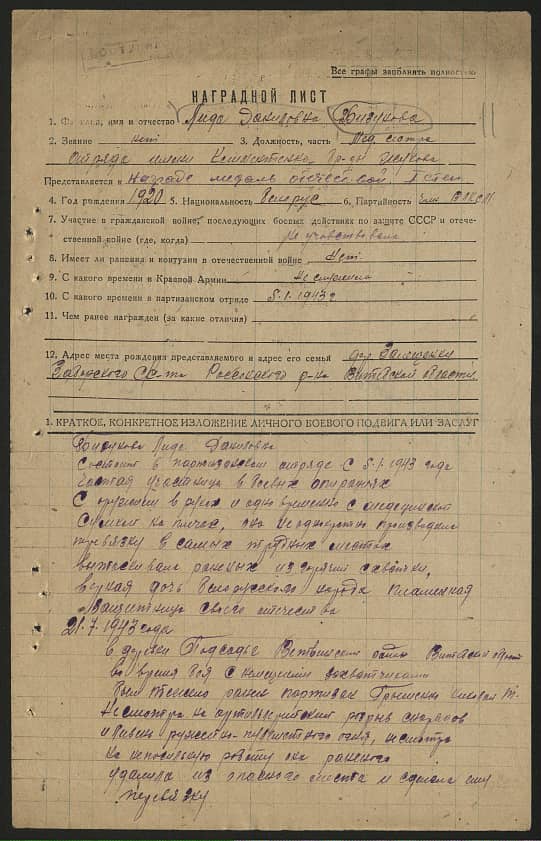 Все графы заполнять полностью
НАГРАДНОЙ ЛИСТ
1. Фамилия, имя и отчество Лида Даниловна
2. Звание нет 3. Должность, часть Мед. сестра
отряда имени
Представляется к награде медаль отечествой степ
4. Год рождения 1920 5. Национальность Белорус 6. Партийность член ВЛКСМ
7. Участие в гражданской войне, последующих боевых действиях по защите СССР и отече-
ственной войне (где, когда) не участвовала
8. Имеет ли ранения и контузии в отечественной войне Нет
9. С какого времени в Красной Армии Не служила
10. С какого времени в партизанском отряде 5.1.1943 г
11. Чем ранее награжден (за какие отличия)
12. Адрес места рождения представляемого и адрес его семьи дер.
с-та р-на области
1. КРАТКОЕ, КОНКРЕТНОЕ ИЗЛОЖЕНИЕ ЛИЧНОГО БОЕВОГО ПОДВИГА ИЛИ ЗАСЛУГ
Лида Даниловна
Состоит в партизанском отряде с 5.1.1943 года
участница в боевых
С оружием в руках и одно временно с
сумкой на плечах, она неоднократно производила
перевязку в самых трудных местах
вытаскивала раненых из горячих схваток,
верная дочь Белорусского народа пламенная
защитница своего отечества
21.7.1943 года
в деревни район
во время боя с немецкими захватчиками
был тяжело ранен партизан
Несмотря на артиллерийский разрыв снарядов
и ливень ружейно-пулеметного огня, несмотря
на непосильную работу она раненого
удалила из опасного места и сделала ему
перевязку